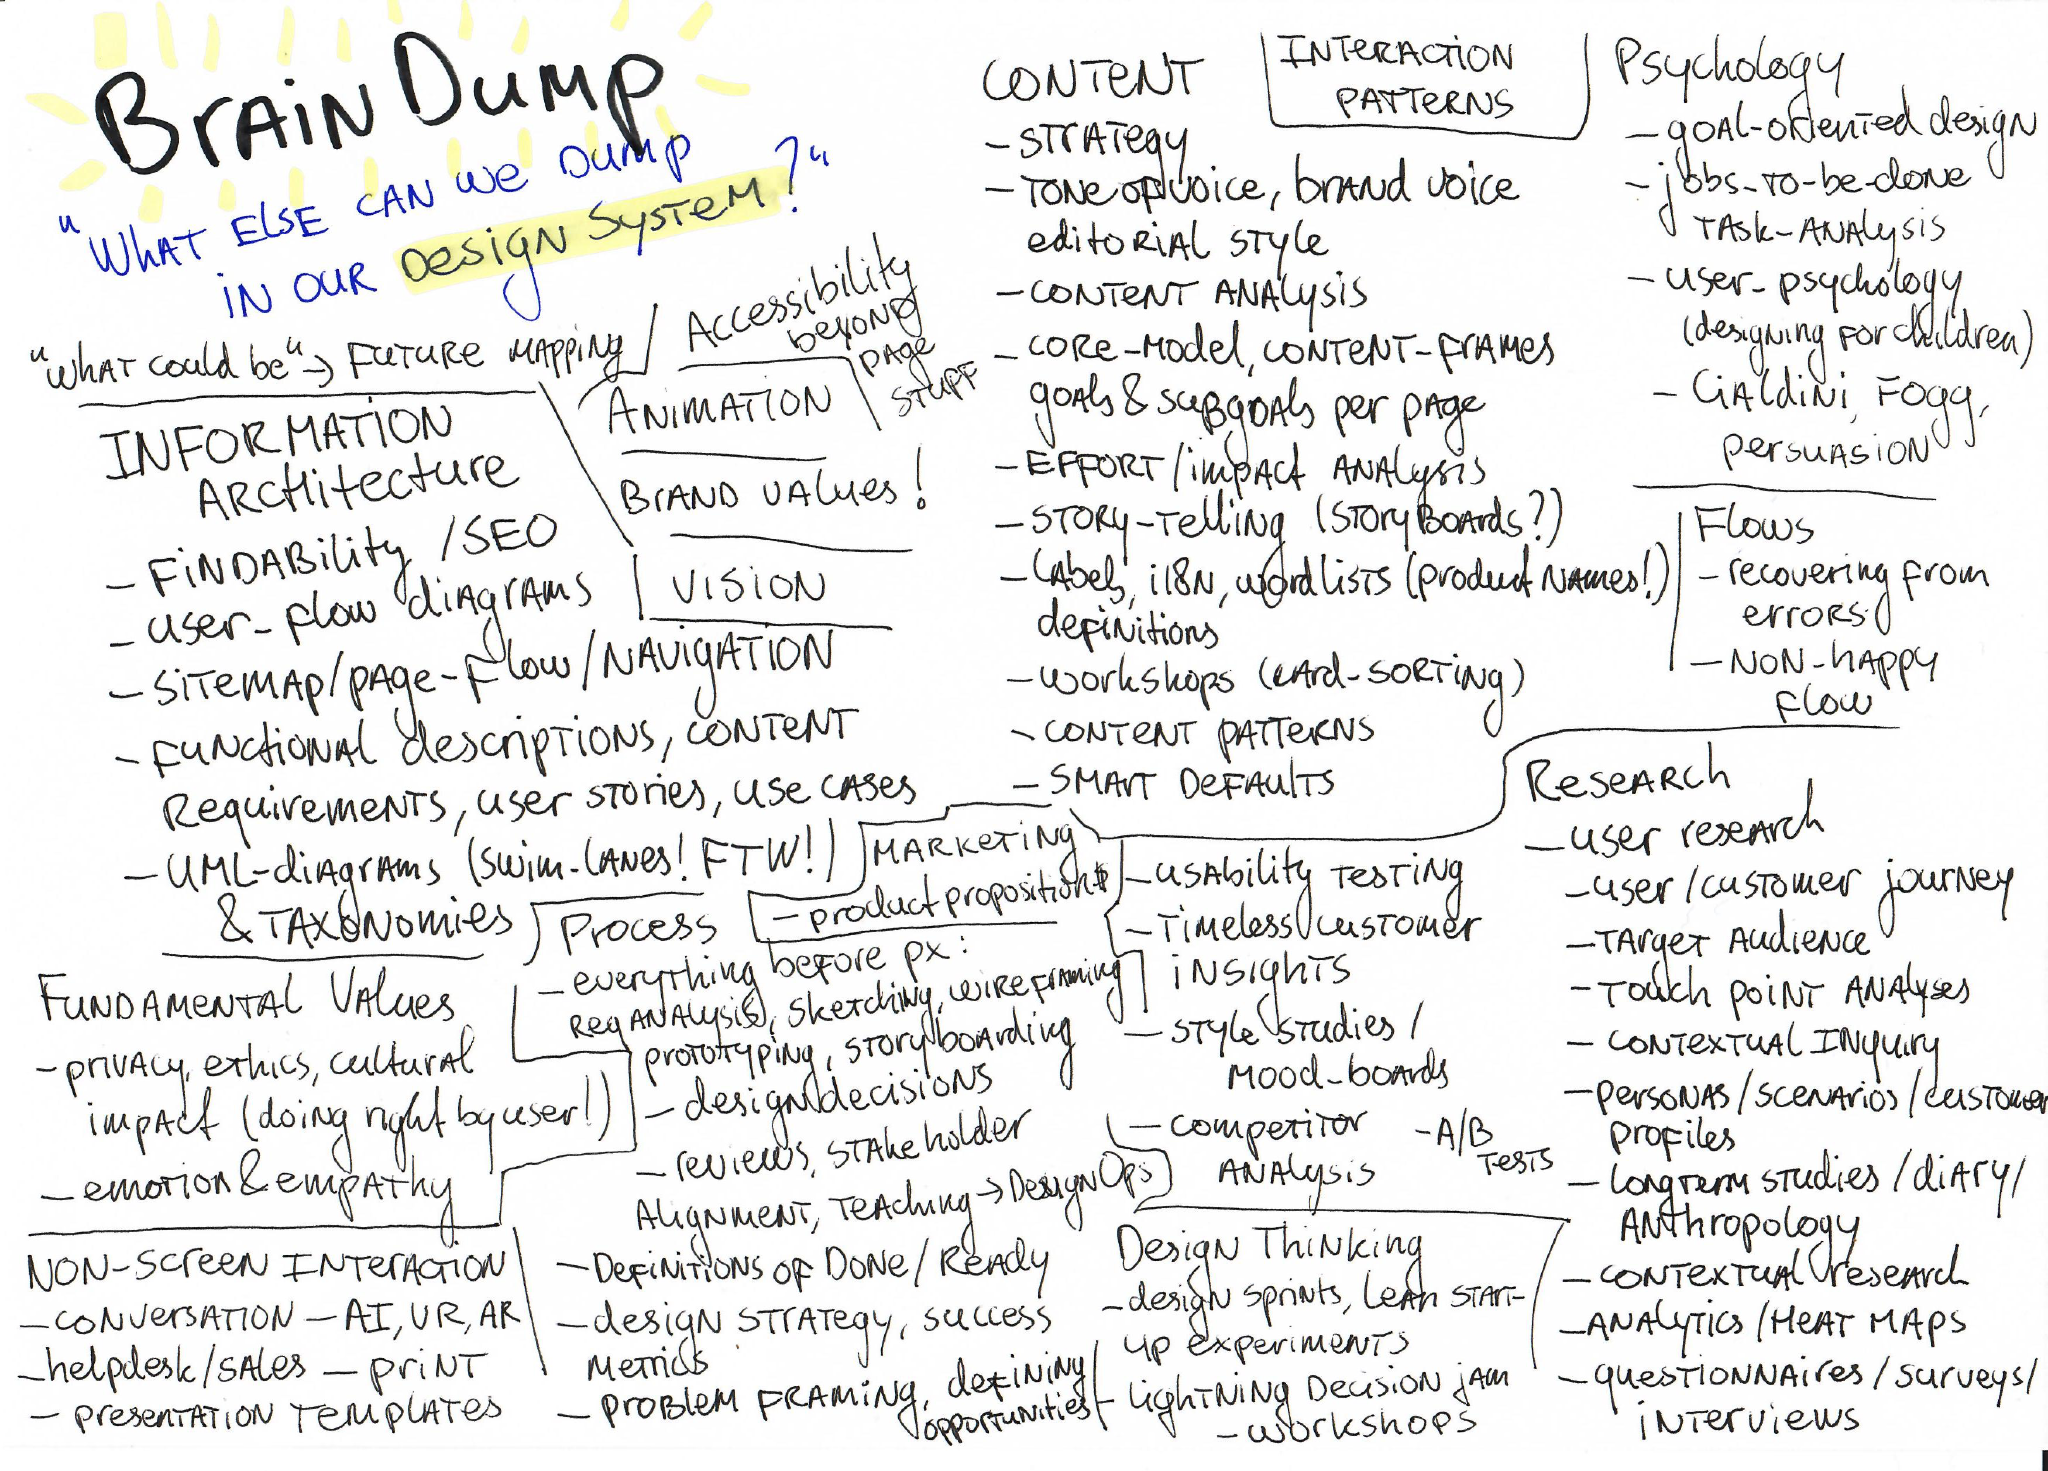 Brain Dump
"What else can we dump
in our Design System?"
"What could be" → Future mapping
Accessibility
beyond
page
stuff
Animation
Brand values!
Vision
Information
Architecture
- Findability/SEO
- user-flow diagrams
- sitemap/page-flow/navigation
- functional descriptions, content
requirements, user stories, use cases
- UML-diagrams (swim-lanes! FTW!)
& taxonomies
Content
- strategy
- tone of voice, brand voice
editorial style
- content analysis
- core-model, content-frames
goals & subgoals per page
- effort/impact analysis
- story-telling (storyboards?)
- labels, i18n, wordlists (product names!)
definitions
- workshops (card-sorting)
- content patterns
- smart defaults
Interaction
patterns
Psychology
- goal-oriented design
- jobs-to-be-done
task-analysis
- user-psychology
(designing for children)
- Cialdini, Fogg,
persuasion
Flows
- recovering from
errors
- non-happy
flow
Marketing
- product proposition
Process
- everything before px:
req analysis, sketching, wireframing
prototyping, storyboarding
- design decisions
- reviews, stakeholder
alignment, teaching → DesignOps
- Definitions of Done/Ready
- design strategy, success
metrics
- problem framing, defining
opportunities
Fundamental Values
- privacy, ethics, cultural
impact (doing right by user!)
- emotion & empathy
Non-screen interaction
- conversation - AI, VR, AR
- helpdesk/sales - print
- presentation templates
Research
- user research
- user/customer journey
- target audience
- touch point analyses
- contextual inquiry
- personas/scenarios/customer
profiles
- longterm studies/diary/
anthropology
- contextual research
- analytics/heat maps
- questionnaires/surveys/
interviews
- usability testing
- timeless customer
insights
- style studies/
mood-boards
- competitor
analysis
- A/B
tests
Design Thinking
- design sprints, lean start-
up experiments
- lightning decision jam
- workshops